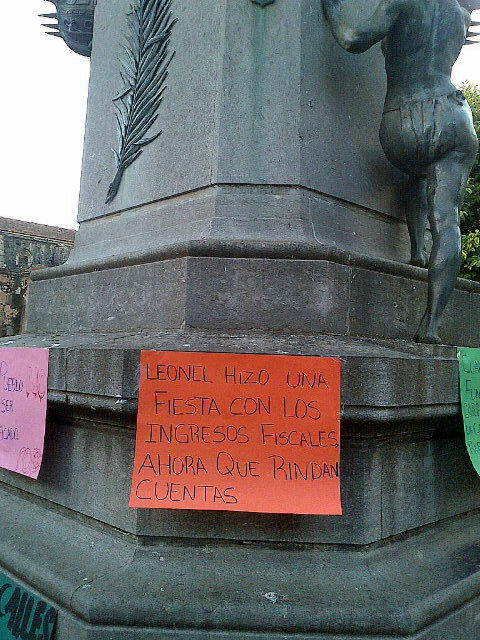 PUEBLO
SER
LEONEL HIZO UNA
FIESTA CON LOS
INGRESOS FISCALES,
AHORA QUE RINDAN
CUENTAS
CALLES